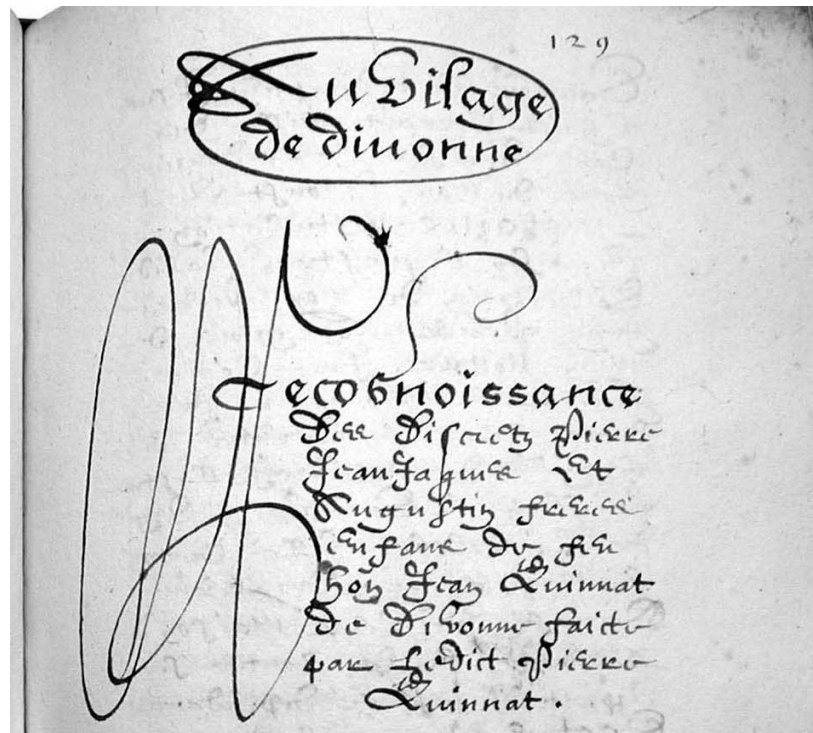 129
Au Vilage
de diuonne
Recognoissance
Des Discretz Pierre
Jean Jaques Et
Augustin freres
enfans de feu
hon Jean Quinnat
de Divonne faicte
par Ledict Pierre
Quinnat .